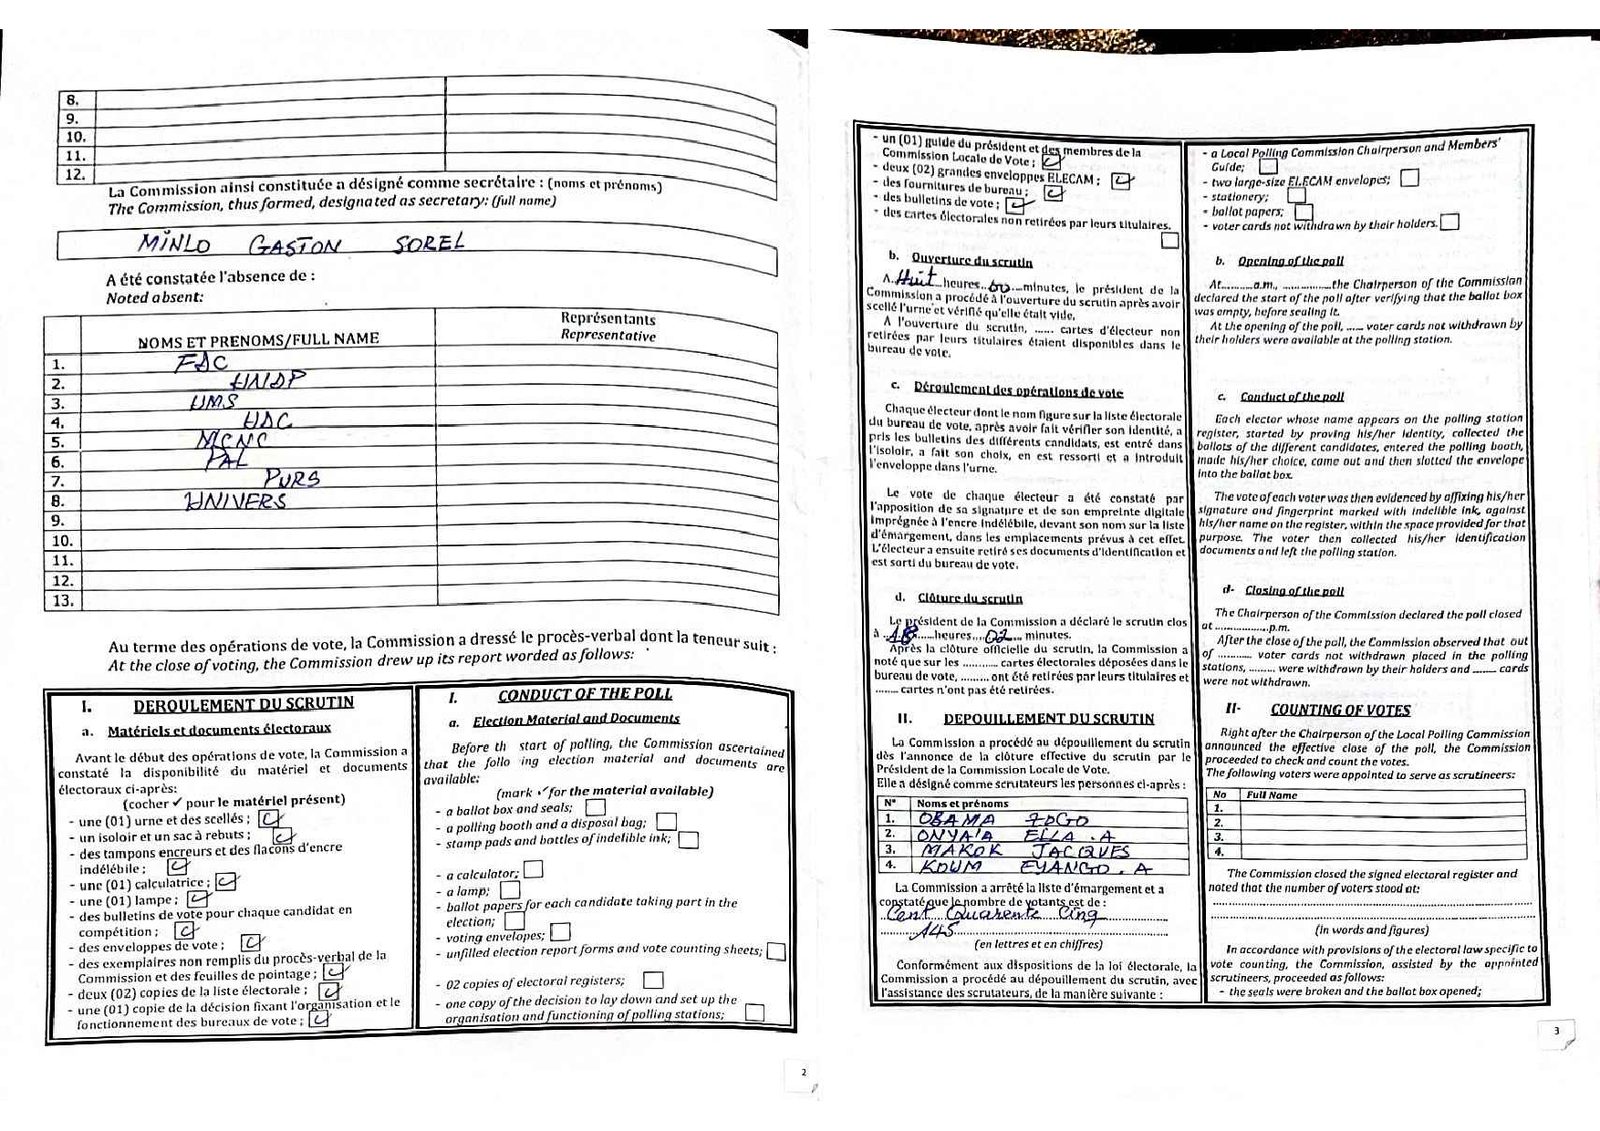 8.
9.
10.
11.
12.
La Commission ainsi constituée a désigné comme secrétaire : (noms et prénoms)
The Commission, thus formed, designated as secretary: (full name)
MINLO GASTON SOREL
A été constatée l'absence de :
Noted absent:
NOMS ET PRENOMS/FULL NAME
Représentants
Representative
1. FDC
2. UNDP
3. UMS
4. UDC
5. MCNC
6. PAL
7. PURS
8. UNIVERS
9.
10.
11.
12.
13.
Au terme des opérations de vote, la Commission a dressé le procès-verbal dont la teneur suit :
At the close of voting, the Commission drew up its report worded as follows:
I. DEROULEMENT DU SCRUTIN
a. Matériels et documents électoraux
Avant le début des opérations de vote, la Commission a
constaté la disponibilité du matériel et documents
électoraux ci-après:
(cocher ✓ pour le matériel présent)
- une (01) urne et des scellés ;
- un isoloir et un sac à rebuts ;
- des tampons encreurs et des flacons d'encre
indélébile ;
- une (01) calculatrice ;
- une (01) lampe ;
- des bulletins de vote pour chaque candidat en
compétition ;
- des enveloppes de vote ;
- des exemplaires non remplis du procès-verbal de la
Commission et des feuilles de pointage ;
- deux (02) copies de la liste électorale ;
- une (01) copie de la décision fixant l'organisation et le
fonctionnement des bureaux de vote ;
I. CONDUCT OF THE POLL
a. Election Material and Documents
Before th start of polling, the Commission ascertained
that the follo ing election material and documents are
available:
(mark ✓ for the material available)
- a ballot box and seals;
- a polling booth and a disposal bag;
- stamp pads and bottles of indelible ink;
- a calculator;
- a lamp;
- ballot papers for each candidate taking part in the
election;
- voting envelopes;
- unfilled election report forms and vote counting sheets;
- 02 copies of electoral registers;
- one copy of the decision to lay down and set up the
organisation and functioning of polling stations;
2
- un (01) guide du président et des membres de la
Commission Locale de Vote ;
- deux (02) grandes enveloppes ELECAM ;
- des fournitures de bureau ;
- des bulletins de vote ;
- des cartes électorales non retirées par leurs titulaires.
b. Ouverture du scrutin
A Huit heures 00 minutes, le président de la
Commission a procédé à l'ouverture du scrutin après avoir
scellé l'urne et vérifié qu'elle était vide.
A l'ouverture du scrutin, ...... cartes d'électeur non
retirées par leurs titulaires étaient disponibles dans le
bureau de vote.
c. Déroulement des opérations de vote
Chaque électeur dont le nom figure sur la liste électorale
du bureau de vote, après avoir fait vérifier son identité, a
pris les bulletins des différents candidats, est entré dans
l'isoloir, a fait son choix, en est ressorti et a introduit
l'enveloppe dans l'urne.
Le vote de chaque électeur a été constaté par
l'apposition de sa signature et de son empreinte digitale
imprégnée à l'encre indélébile, devant son nom sur la liste
d'émargement, dans les emplacements prévus à cet effet.
L'électeur a ensuite retiré ses documents d'identification et
est sorti du bureau de vote.
d. Clôture du scrutin
Le président de la Commission a déclaré le scrutin clos
à 18 heures 02 minutes.
Après la clôture officielle du scrutin, la Commission a
noté que sur les ........... cartes électorales déposées dans le
bureau de vote, ......... ont été retirées par leurs titulaires et
........ cartes n'ont pas été retirées.
II. DEPOUILLEMENT DU SCRUTIN
La Commission a procédé au dépouillement du scrutin
dès l'annonce de la clôture effective du scrutin par le
Président de la Commission Locale de Vote.
Elle a désigné comme scrutateurs les personnes ci-après :
N° Noms et prénoms
1. OBAMA
2. ONYA'A ELLA .A
3. MAKOK JACQUES
4. KOUM EYANGO .A
La Commission a arrêté la liste d'émargement et a
constaté que le nombre de votants est de :
Cent Quarente Cinq
145
(en lettres et en chiffres)
Conformément aux dispositions de la loi électorale, la
Commission a procédé au dépouillement du scrutin, avec
l'assistance des scrutateurs, de la manière suivante :
- a Local Polling Commission Chairperson and Members'
Guide;
- two large-size ELECAM envelopes;
- stationery;
- ballot papers;
- voter cards not withdrawn by their holders.
b. Opening of the poll
At..........a.m., ..............the Chairperson of the Commission
declared the start of the poll after verifying that the ballot box
was empty, before sealing it.
At the opening of the poll, ...... voter cards not withdrawn by
their holders were available at the polling station.
c. Conduct of the poll
Each elector whose name appears on the polling station
register, started by proving his/her identity, collected the
ballots of the different candidates, entered the polling booth,
made his/her choice, came out and then slotted the envelope
into the ballot box.
The vote of each voter was then evidenced by affixing his/her
signature and fingerprint marked with indelible ink, against
his/her name on the register, within the space provided for that
purpose. The voter then collected his/her identification
documents and left the polling station.
d- Closing of the poll
The Chairperson of the Commission declared the poll closed
at ...............p.m.
After the close of the poll, the Commission observed that out
of .......... voter cards not withdrawn placed in the polling
stations, ......... were withdrawn by their holders and ........ cards
were not withdrawn.
II- COUNTING OF VOTES
Right after the Chairperson of the Local Polling Commission
announced the effective close of the poll, the Commission
proceeded to check and count the votes.
The following voters were appointed to serve as scrutineers:
No Full Name
1.
2.
3.
4.
The Commission closed the signed electoral register and
noted that the number of voters stood at:
(in words and figures)
In accordance with provisions of the electoral law specific to
vote counting, the Commission, assisted by the appointed
scrutineers, proceeded as follows:
- the seals were broken and the ballot box opened;
3